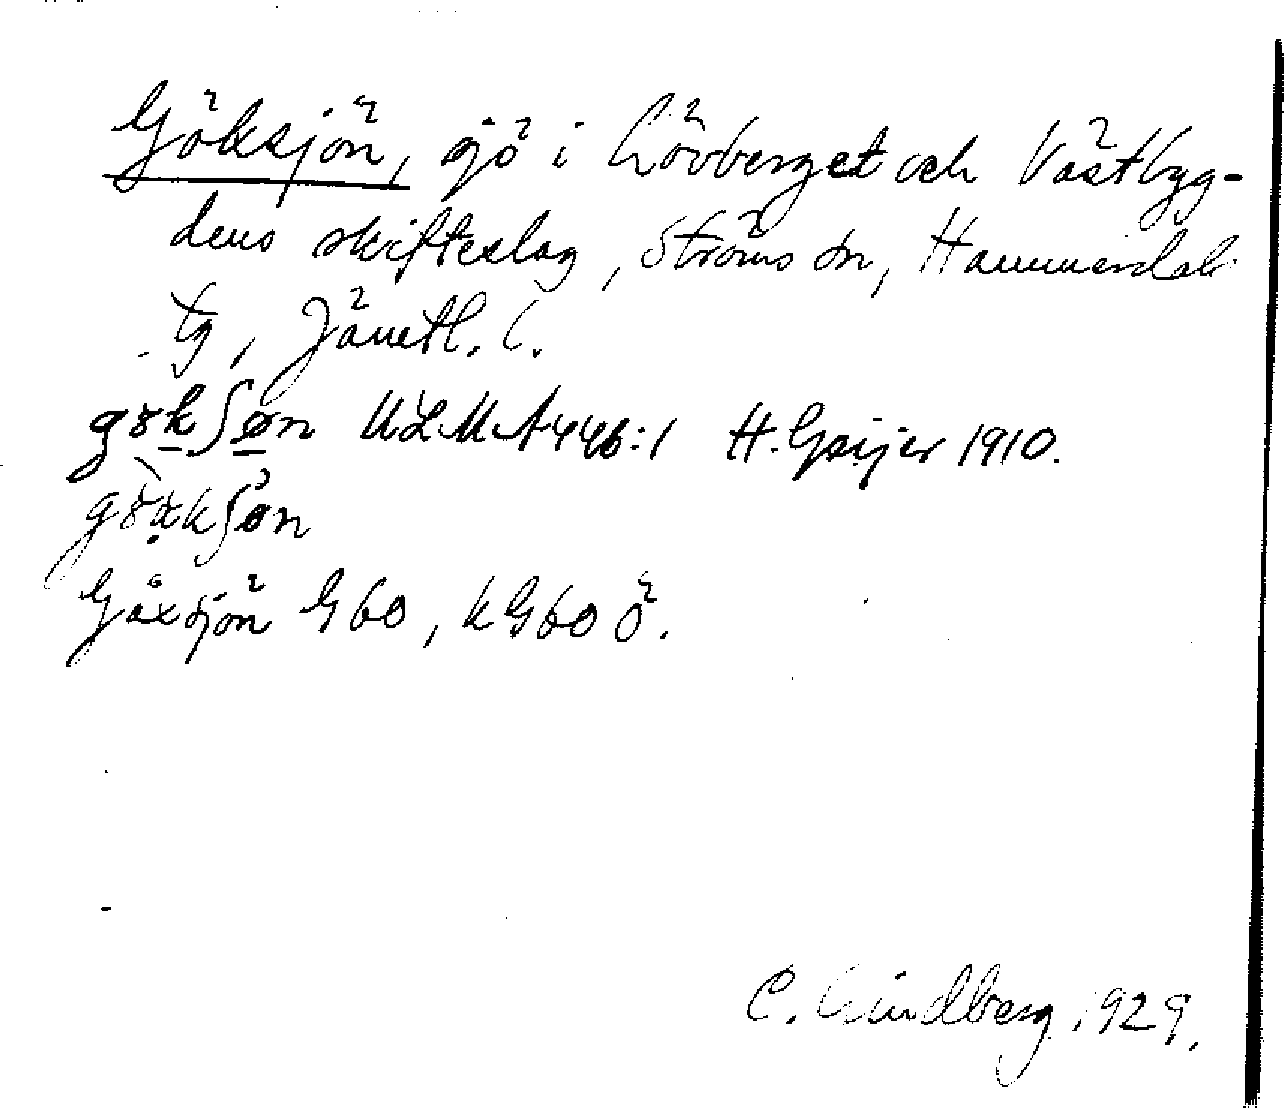 Göksjön, sjö i Lövberget och Västbyg-
dens skifteslag, Ströms sn, Hammerdals
tg, Jämtl. l.
gökʃøn ULMA 446:1 H. Geijer 1910.
Gåxsjön G60, kG60 Ö.
C. Lindberg 1929.